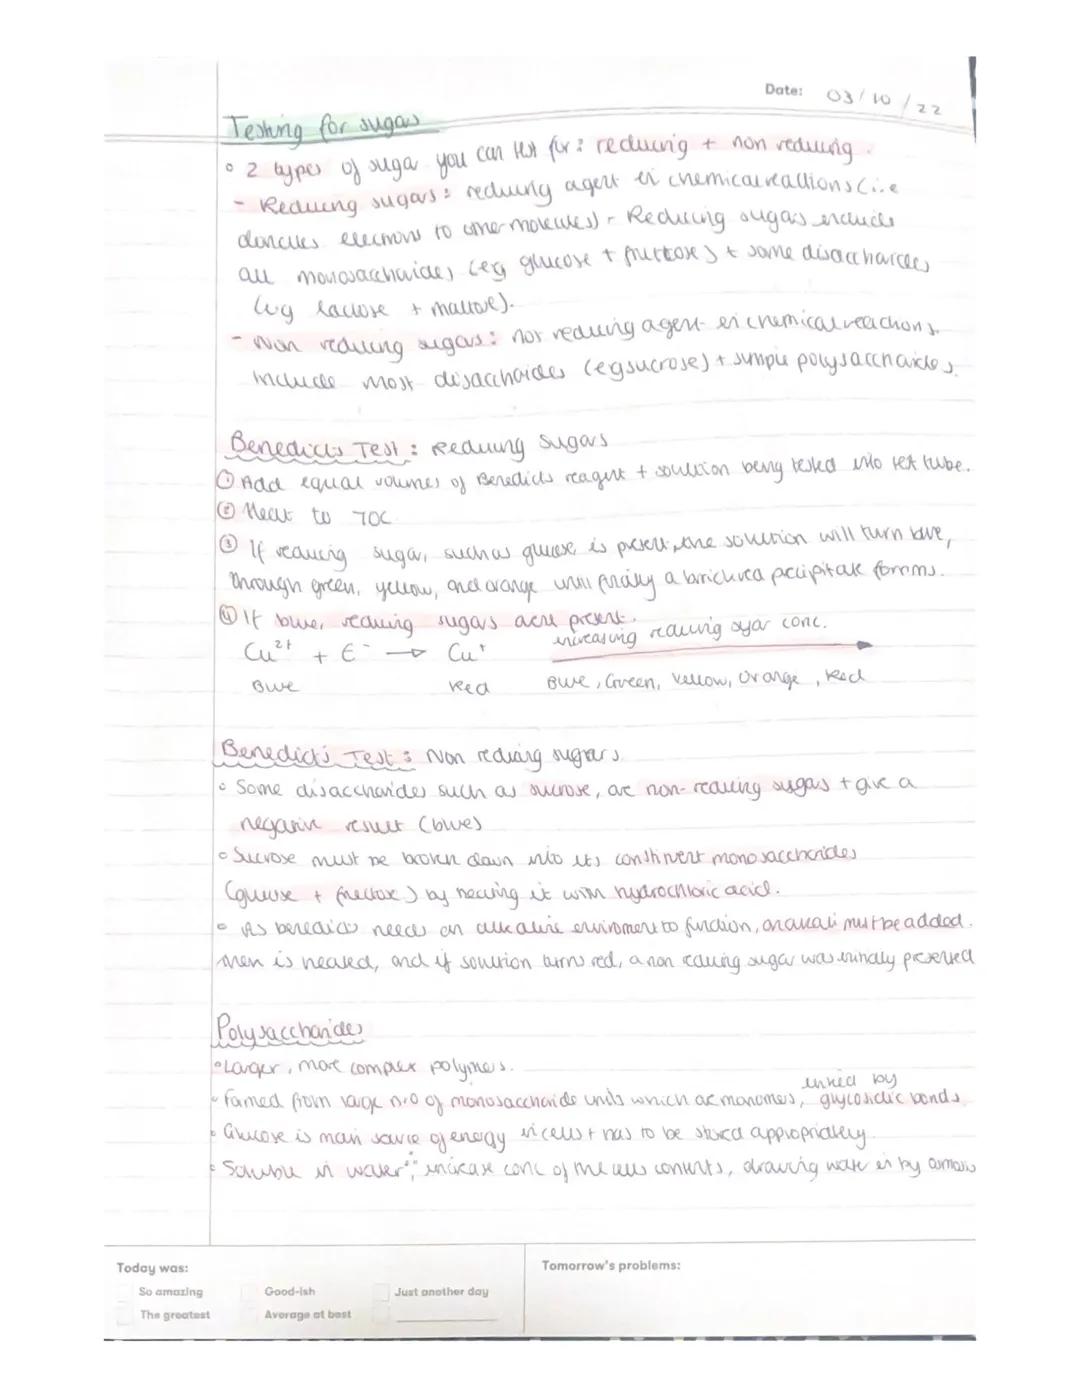 Date: 03/10/22
Testing for sugars
◦ 2 types of sugar you can test for: reducing + non reducing.
- Reducing sugars: reducing agent in chemical reactions (i.e
donates electrons to other molecules) - Reducing sugars include
all monosaccharides (eg glucose + fructose) + some disaccharides
(eg lactose + maltose).
- Non reducing sugars: not reducing agent in chemical reactions.
Include most disaccharides (eg sucrose) + simple polysaccharides.
Benedicts Test: Reducing Sugars
① Add equal volumes of Benedicts reagent + solution being tested into test tube.
② Heat to 70C
③ If reducing sugar, such as glucose, is present, the solution will turn blue,
through green, yellow, and orange until finally a brick red precipitate forms.
④ If blue, reducing sugars present.
increasing reducing sugar conc.
Cu²⁺ + E⁻ → Cu⁺
Blue Red Blue, Green, Yellow, Orange, Red
Benedict's Test: Non reducing sugars
◦ Some disaccharides such as sucrose, are non-reducing sugars + give a
negative result (blues)
◦ Sucrose must be broken down into its constituent monosaccharides
(glucose + fructose) by heating it with hydrochloric acid.
◦ As benedicts needs an alkaline enviroment to function, an alkali must be added.
then is heated, and if solution turns red, a non reducing sugar was initially
Polysaccharides
◦ Larger, more complex polymers.
linked by
◦ Formed from large n.o of monosaccharide units which are monomers, glycosidic bonds
◦ Glucose is main source of energy in cells + has to be stored appropriately.
◦ Soluble in water ∴ increase conc of the cells contents, drawing water in by osmosis
Today was:
So amazing
Good-ish
Just another day
The greatest
Average at best
Tomorrow's problems: